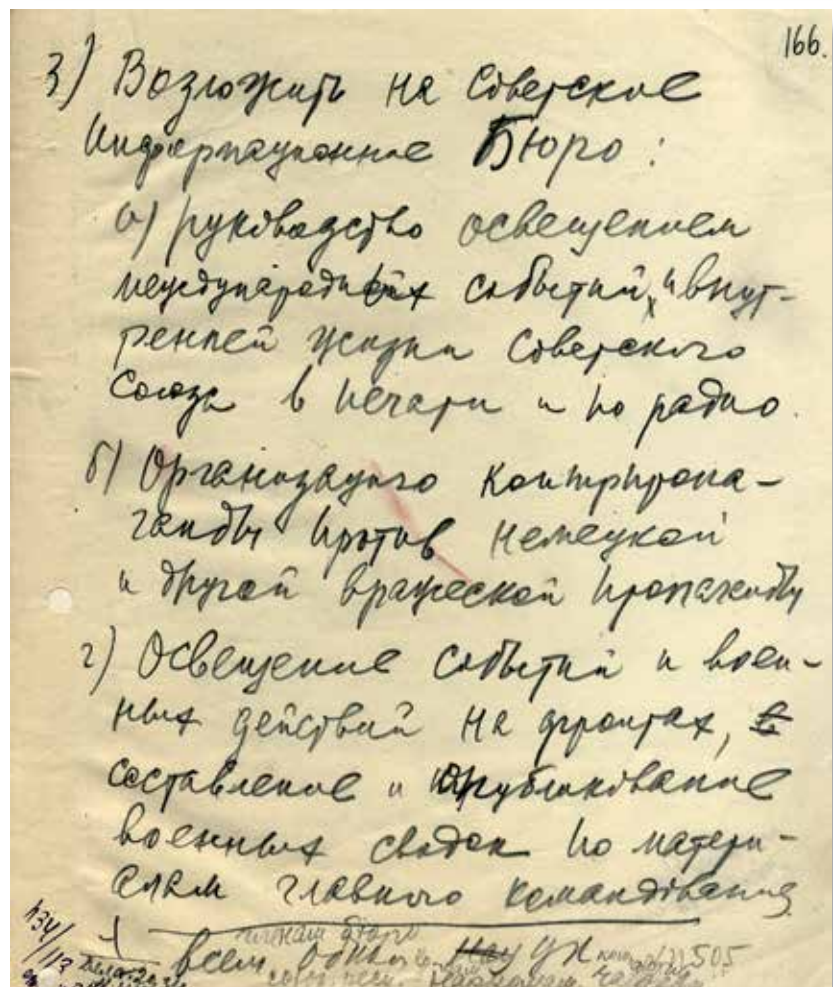 166.
3) Возложить на Советское
Информационное Бюро:
а) руководство освещением
международных событий и внут-
ренней жизни Советского
Союза в печати и по радио.
б) Организацию контрпропа-
ганды против немецкой
и другой вражеской пропаганды
г) Освещение событий и воен-
ных действий на фронтах,
составление и опубликование
военных сводок по матери-
алам главного командования
членам бюро
всем